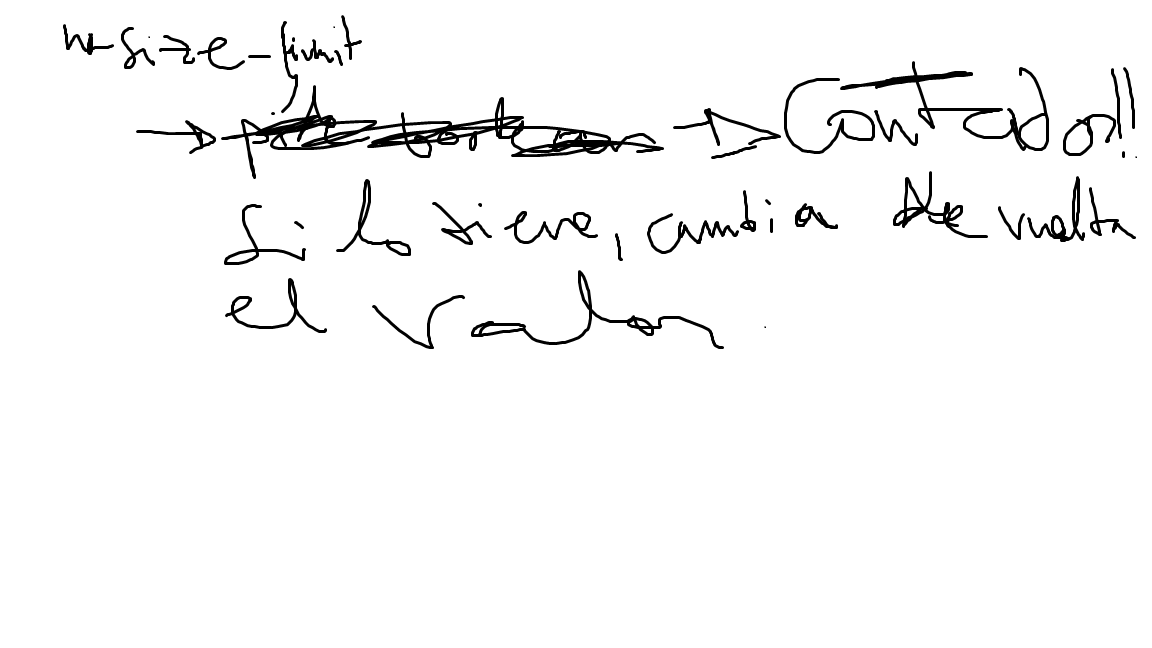 size-limit
→ → Contado!!
Si lo tiene, cambia de vuelta
el valor